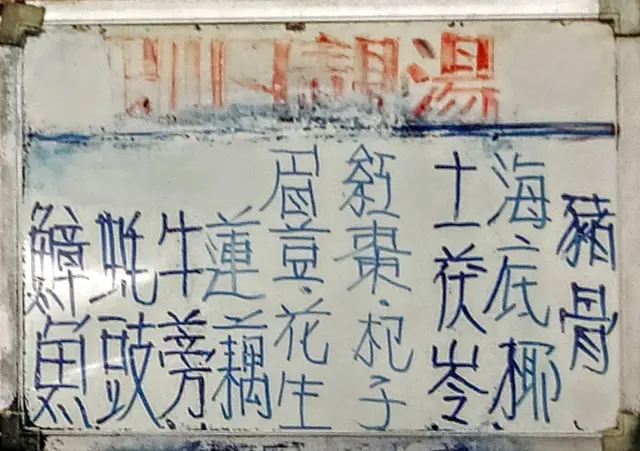 日靚湯
豬骨
海底椰
土茯苓
紅棗·杞子
眉豆·花生
蓮藕
牛蒡
蚝豉
鱆魚